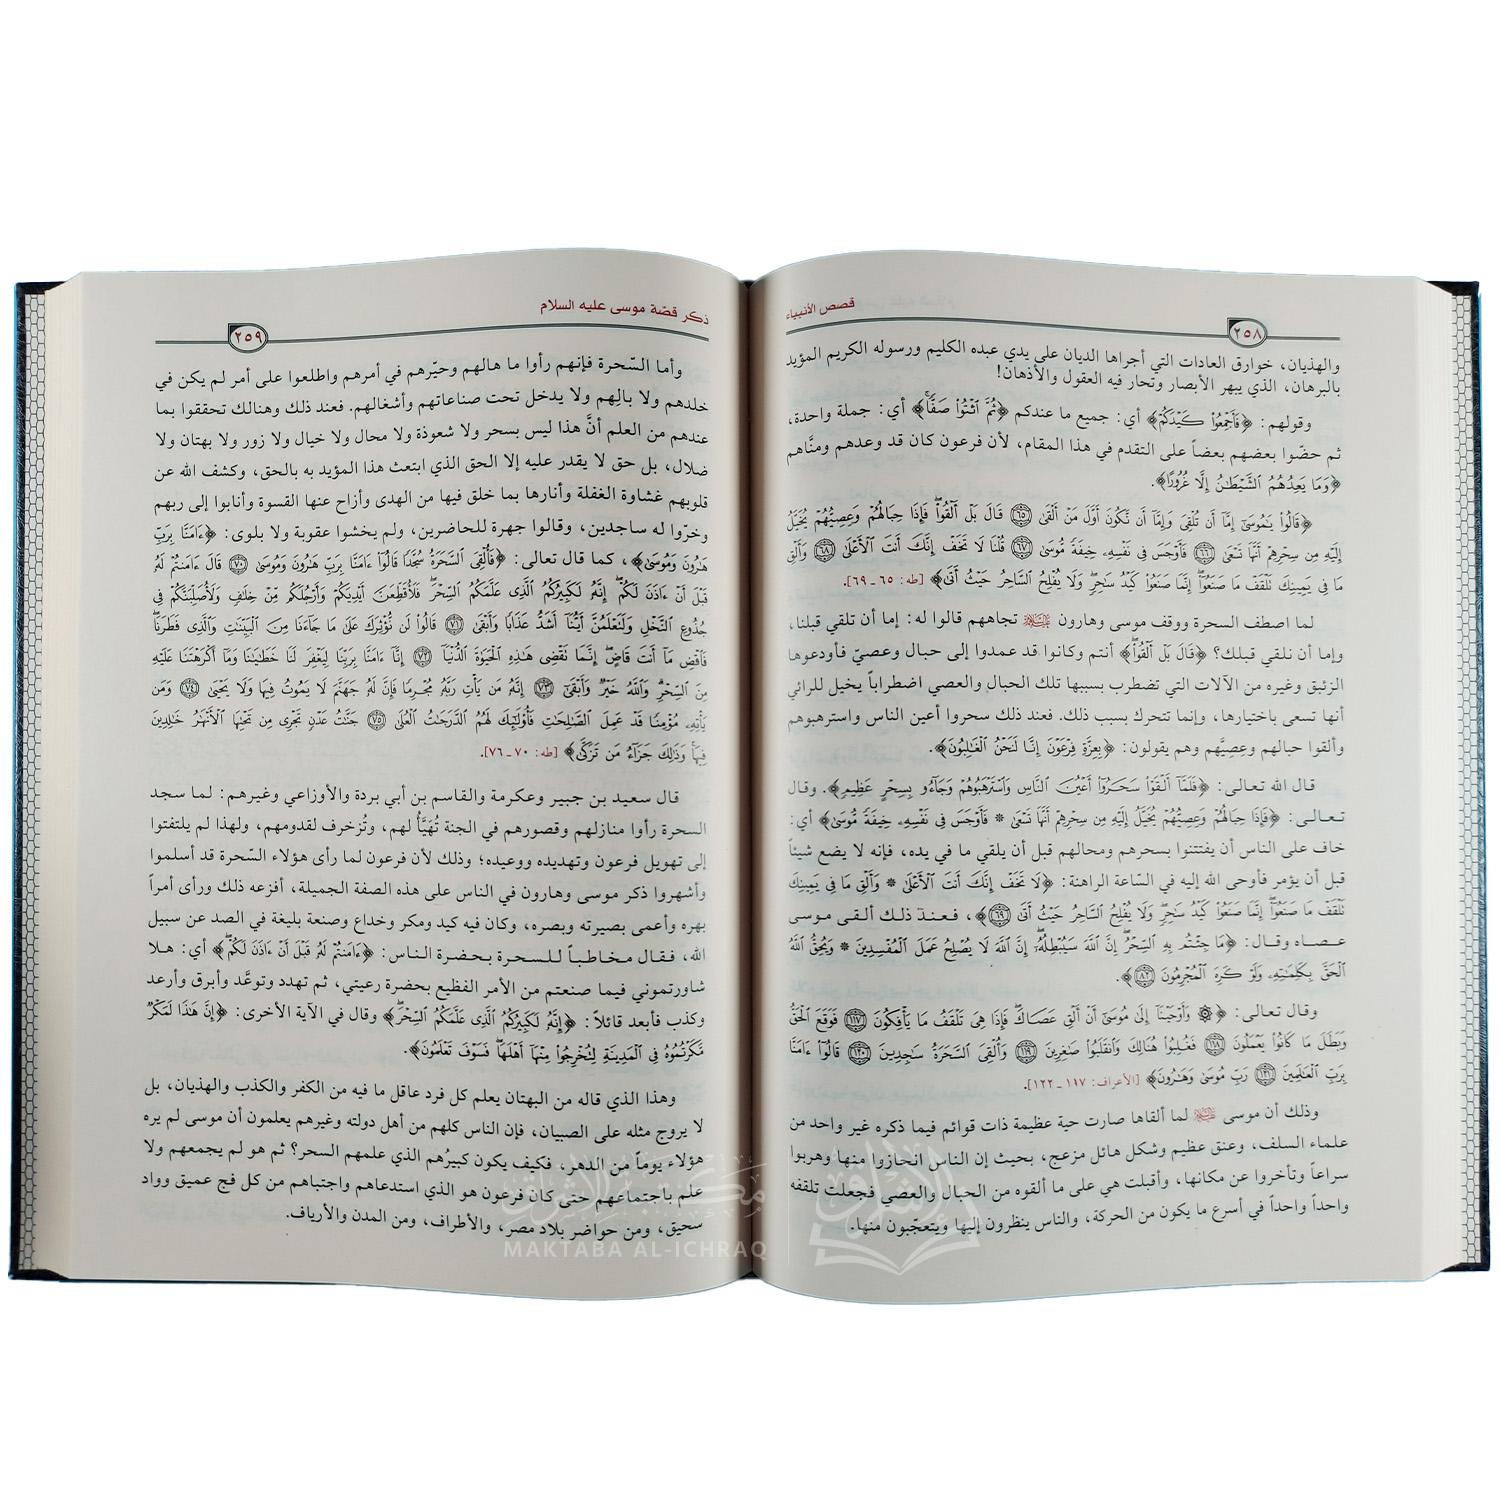 قصص الأنبياء
٢٥٨
والهذيان، خوارق العادات التي أجراها الديان على يدي عبده الكليم ورسوله الكريم المؤيد
بالبرهان، الذي يبهر الأبصار وتحار فيه العقول والأذهان!
وقولهم: ﴿فَأَجْمِعُوا۟ كَيْدَكُمْ﴾ أي: جميع ما عندكم ﴿ثُمَّ ٱئْتُوا۟ صَفًّا﴾ أي: جملة واحدة،
ثم حضّوا بعضهم بعضاً على التقدم في هذا المقام، لأن فرعون كان قد وعدهم ومنَّاهم
﴿وَمَا يَعِدُهُمُ ٱلشَّيْطَٰنُ إِلَّا غُرُورًا﴾.
﴿قَالُوا۟ يَٰمُوسَىٰٓ إِمَّآ أَن تُلْقِىَ وَإِمَّآ أَن نَّكُونَ أَوَّلَ مَنْ أَلْقَىٰ ٦٥ قَالَ بَلْ أَلْقُوا۟ فَإِذَا حِبَالُهُمْ وَعِصِيُّهُمْ يُخَيَّلُ
إِلَيْهِ مِن سِحْرِهِمْ أَنَّهَا تَسْعَىٰ ٦٦ فَأَوْجَسَ فِى نَفْسِهِۦ خِيفَةً مُّوسَىٰ ٦٧ قُلْنَا لَا تَخَفْ إِنَّكَ أَنتَ ٱلْأَعْلَىٰ ٦٨ وَأَلْقِ
مَا فِى يَمِينِكَ تَلْقَفْ مَا صَنَعُوٓا۟ إِنَّمَا صَنَعُوا۟ كَيْدُ سَٰحِرٍ وَلَا يُفْلِحُ ٱلسَّاحِرُ حَيْثُ أَتَىٰ﴾ [طه: ٦٥ ـ ٦٩].
لما اصطف السحرة ووقف موسى وهارون تجاههم قالوا له: إما أن تلقي قبلنا،
وإما أن نلقي قبلك؟ ﴿قَالَ بَلْ أَلْقُوا۟﴾ أنتم وكانوا قد عمدوا إلى حبال وعصيّ فأودعوها
الزئبق وغيره من الآلات التي تضطرب بسببها تلك الحبال والعصي اضطراباً يخيل للرائي
أنها تسعى باختيارها، وإنما تتحرك بسبب ذلك. فعند ذلك سحروا أعين الناس واسترهبوهم
وألقوا حبالهم وعصِيَّهم وهم يقولون: ﴿بِعِزَّةِ فِرْعَوْنَ إِنَّا لَنَحْنُ ٱلْغَٰلِبُونَ﴾.
قال الله تعالى: ﴿فَلَمَّآ أَلْقَوْا۟ سَحَرُوٓا۟ أَعْيُنَ ٱلنَّاسِ وَٱسْتَرْهَبُوهُمْ وَجَآءُو بِسِحْرٍ عَظِيمٍ﴾. وقال
تعالى: ﴿فَإِذَا حِبَالُهُمْ وَعِصِيُّهُمْ يُخَيَّلُ إِلَيْهِ مِن سِحْرِهِمْ أَنَّهَا تَسْعَىٰ * فَأَوْجَسَ فِى نَفْسِهِۦ خِيفَةً مُّوسَىٰ﴾ أي:
خاف على الناس أن يفتتنوا بسحرهم ومحالهم قبل أن يلقي ما في يده، فإنه لا يضع شيئاً
قبل أن يؤمر فأوحى الله إليه في السّاعة الراهنة: ﴿لَا تَخَفْ إِنَّكَ أَنتَ ٱلْأَعْلَىٰ * وَأَلْقِ مَا فِى يَمِينِكَ
تَلْقَفْ مَا صَنَعُوٓا۟ إِنَّمَا صَنَعُوا۟ كَيْدُ سَٰحِرٍ وَلَا يُفْلِحُ ٱلسَّاحِرُ حَيْثُ أَتَىٰ ٦٩﴾، فعند ذلك ألقى موسى
عصاه وقال: ﴿مَا جِئْتُم بِهِ ٱلسِّحْرُ إِنَّ ٱللَّهَ سَيُبْطِلُهُۥٓ إِنَّ ٱللَّهَ لَا يُصْلِحُ عَمَلَ ٱلْمُفْسِدِينَ * وَيُحِقُّ ٱللَّهُ
ٱلْحَقَّ بِكَلِمَٰتِهِۦ وَلَوْ كَرِهَ ٱلْمُجْرِمُونَ ٨٢﴾.
وقال تعالى: ﴿۞ وَأَوْحَيْنَآ إِلَىٰ مُوسَىٰٓ أَنْ أَلْقِ عَصَاكَ فَإِذَا هِىَ تَلْقَفُ مَا يَأْفِكُونَ ١١٧ فَوَقَعَ ٱلْحَقُّ
وَبَطَلَ مَا كَانُوا۟ يَعْمَلُونَ ١١٨ فَغُلِبُوا۟ هُنَالِكَ وَٱنقَلَبُوا۟ صَٰغِرِينَ ١١٩ وَأُلْقِىَ ٱلسَّحَرَةُ سَٰجِدِينَ ١٢٠ قَالُوٓا۟ ءَامَنَّا
بِرَبِّ ٱلْعَٰلَمِينَ ١٢١ رَبِّ مُوسَىٰ وَهَٰرُونَ﴾ [الأعراف: ١١٧ ـ ١٢٢].
وذلك أن موسى لما ألقاها صارت حية عظيمة ذات قوائم فيما ذكره غير واحد من
علماء السلف، وعنق عظيم وشكل هائل مزعج، بحيث إن الناس انحازوا منها وهربوا
سراعاً وتأخروا عن مكانها، وأقبلت هي على ما ألقوه من الحبال والعصي فجعلت تلقفه
واحداً واحداً في أسرع ما يكون من الحركة، والناس ينظرون إليها ويتعجّبون منها.
ذكر قصّة موسى عليه السلام
٢٥٩
وأما السّحرة فإنهم رأوا ما هالهم وحيّرهم في أمرهم واطلعوا على أمر لم يكن في
خلدهم ولا بالِهم ولا يدخل تحت صناعاتهم وأشغالهم. فعند ذلك وهنالك تحققوا بما
عندهم من العلم أنَّ هذا ليس بسحر ولا شعوذة ولا محال ولا خيال ولا زور ولا بهتان ولا
ضلال، بل حق لا يقدر عليه إلا الحق الذي ابتعث هذا المؤيد به بالحق، وكشف الله عن
قلوبهم غشاوة الغفلة وأنارها بما خلق فيها من الهدى وأزاح عنها القسوة وأنابوا إلى ربهم
وخرّوا له ساجدين، وقالوا جهرة للحاضرين، ولم يخشوا عقوبة ولا بلوى: ﴿ءَامَنَّا بِرَبِّ
هَٰرُونَ وَمُوسَىٰ﴾، كما قال تعالى: ﴿فَأُلْقِىَ ٱلسَّحَرَةُ سُجَّدًا قَالُوٓا۟ ءَامَنَّا بِرَبِّ هَٰرُونَ وَمُوسَىٰ ٧٠ قَالَ ءَامَنتُمْ لَهُۥ
قَبْلَ أَنْ ءَاذَنَ لَكُمْ إِنَّهُۥ لَكَبِيرُكُمُ ٱلَّذِى عَلَّمَكُمُ ٱلسِّحْرَ فَلَأُقَطِّعَنَّ أَيْدِيَكُمْ وَأَرْجُلَكُم مِّنْ خِلَٰفٍ وَلَأُصَلِّبَنَّكُمْ فِى
جُذُوعِ ٱلنَّخْلِ وَلَتَعْلَمُنَّ أَيُّنَآ أَشَدُّ عَذَابًا وَأَبْقَىٰ ٧١ قَالُوا۟ لَن نُّؤْثِرَكَ عَلَىٰ مَا جَآءَنَا مِنَ ٱلْبَيِّنَٰتِ وَٱلَّذِى فَطَرَنَا
فَٱقْضِ مَآ أَنتَ قَاضٍ إِنَّمَا تَقْضِى هَٰذِهِ ٱلْحَيَوٰةَ ٱلدُّنْيَآ ٧٢ إِنَّآ ءَامَنَّا بِرَبِّنَا لِيَغْفِرَ لَنَا خَطَٰيَٰنَا وَمَآ أَكْرَهْتَنَا عَلَيْهِ
مِنَ ٱلسِّحْرِ وَٱللَّهُ خَيْرٌ وَأَبْقَىٰٓ ٧٣ إِنَّهُۥ مَن يَأْتِ رَبَّهُۥ مُجْرِمًا فَإِنَّ لَهُۥ جَهَنَّمَ لَا يَمُوتُ فِيهَا وَلَا يَحْيَىٰ ٧٤ وَمَن
يَأْتِهِۦ مُؤْمِنًا قَدْ عَمِلَ ٱلصَّٰلِحَٰتِ فَأُو۟لَٰٓئِكَ لَهُمُ ٱلدَّرَجَٰتُ ٱلْعُلَىٰ ٧٥ جَنَّٰتُ عَدْنٍ تَجْرِى مِن تَحْتِهَا ٱلْأَنْهَٰرُ خَٰلِدِينَ
فِيهَا وَذَٰلِكَ جَزَآءُ مَن تَزَكَّىٰ﴾ [طه: ٧٠ ـ ٧٦].
قال سعيد بن جبير وعكرمة والقاسم بن أبي بردة والأوزاعي وغيرهم: لما سجد
السحرة رأوا منازلهم وقصورهم في الجنة تُهَيَّأُ لهم، وتُزخرف لقدومهم، ولهذا لم يلتفتوا
إلى تهويل فرعون وتهديده ووعيده؛ وذلك لأن فرعون لما رأى هؤلاء السّحرة قد أسلموا
وأشهروا ذكر موسى وهارون في الناس على هذه الصفة الجميلة، أفزعه ذلك ورأى أمراً
بهره وأعمى بصيرته وبصره، وكان فيه كيد ومكر وخداع وصنعة بليغة في الصد عن سبيل
الله، فقال مخاطباً للسحرة بحضرة الناس: ﴿ءَامَنتُمْ لَهُۥ قَبْلَ أَنْ ءَاذَنَ لَكُمْ﴾ أي: هلا
شاورتموني فيما صنعتم من الأمر الفظيع بحضرة رعيتي، ثم تهدد وتوعَّد وأبرق وأرعد
وكذب فأبعد قائلاً: ﴿إِنَّهُۥ لَكَبِيرُكُمُ ٱلَّذِى عَلَّمَكُمُ ٱلسِّحْرَ﴾ وقال في الآية الأخرى: ﴿إِنَّ هَٰذَا لَمَكْرٌ
مَّكَرْتُمُوهُ فِى ٱلْمَدِينَةِ لِتُخْرِجُوا۟ مِنْهَآ أَهْلَهَا فَسَوْفَ تَعْلَمُونَ﴾.
وهذا الذي قاله من البهتان يعلم كل فرد عاقل ما فيه من الكفر والكذب والهذيان، بل
لا يروج مثله على الصبيان، فإن الناس كلهم من أهل دولته وغيرهم يعلمون أن موسى لم يره
هؤلاء يوماً من الدهر، فكيف يكون كبيرُهم الذي علمهم السحر؟ ثم هو لم يجمعهم ولا
علم باجتماعهم حتى كان فرعون هو الذي استدعاهم واجتباهم من كل فج عميق وواد
سحيق، ومن حواضر بلاد مصر، والأطراف، ومن المدن والأرياف.
مكتبة الإشراق
MAKTABA AL-ICHRAQ